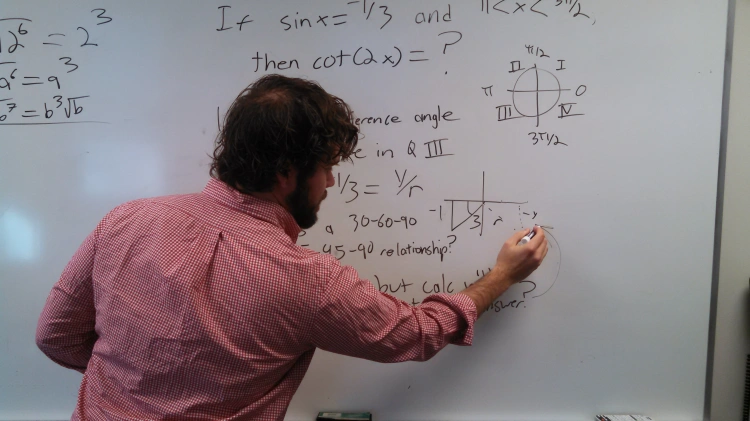 2⁶ = 2³
a⁶ = a³
b⁷ = b³√b
If sin x = -1/3 and π < x < 3π/2,
then cot(2x) = ?
π/2
II I
π 0
III IV
3π/2
angle
in Q III
1/3 = y/r
a 30-60-90
-1 3 r -y
45-90 relationship?
but calc
answer?